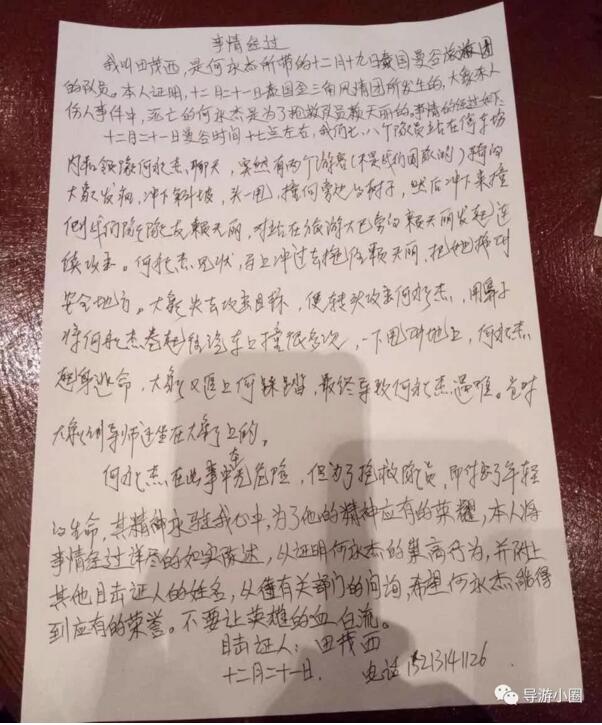 事情经过
我叫田茂西,是何永杰所带的十二月十九日泰国曼谷旅游团
的队员。本人证明,十二月二十一日泰国金三角风情园所发生的,大象本人
伤人事件中,死亡的何永杰是为了抢救队员赖天丽的。事情的经过如下:
十二月二十一日曼谷时间十七点左右,我们七、八个队员站在停车场
内和领队何永杰聊天,突然有两个游客(不是我们团队的)骑的
大象发疯,冲下斜坡,头一甩,撞何旁边的树子,然后冲下来撞
倒我们队队友赖天丽,对站在旅游大巴旁的赖天丽发起连
续攻击。何永杰见状,马上冲过去抱住赖天丽,把她推到
安全地方。大象失去攻击目标,便转头攻击何永杰,用鼻子
将何永杰卷起往汽车上撞很多次,一下甩到地上,何永杰
起身逃命,大象又追上何踩踏,最终导致何永杰遇难。当时
大象训导师还坐在大象上的。
何永杰在此事中无危险,但为了抢救队员,即付出了年轻
的生命,其精神永驻我心中,为了他的精神应有的荣耀,本人将
事情经过详尽的如实陈述,以证明何永杰的崇高行为,并附上
其他目击证人的姓名,以备有关部门的问询,希望何永杰能得
到应有的荣誉。不要让英雄的血白流。
目击证人:田茂西
十二月二十一日. 电话15213141126.
导游小圈